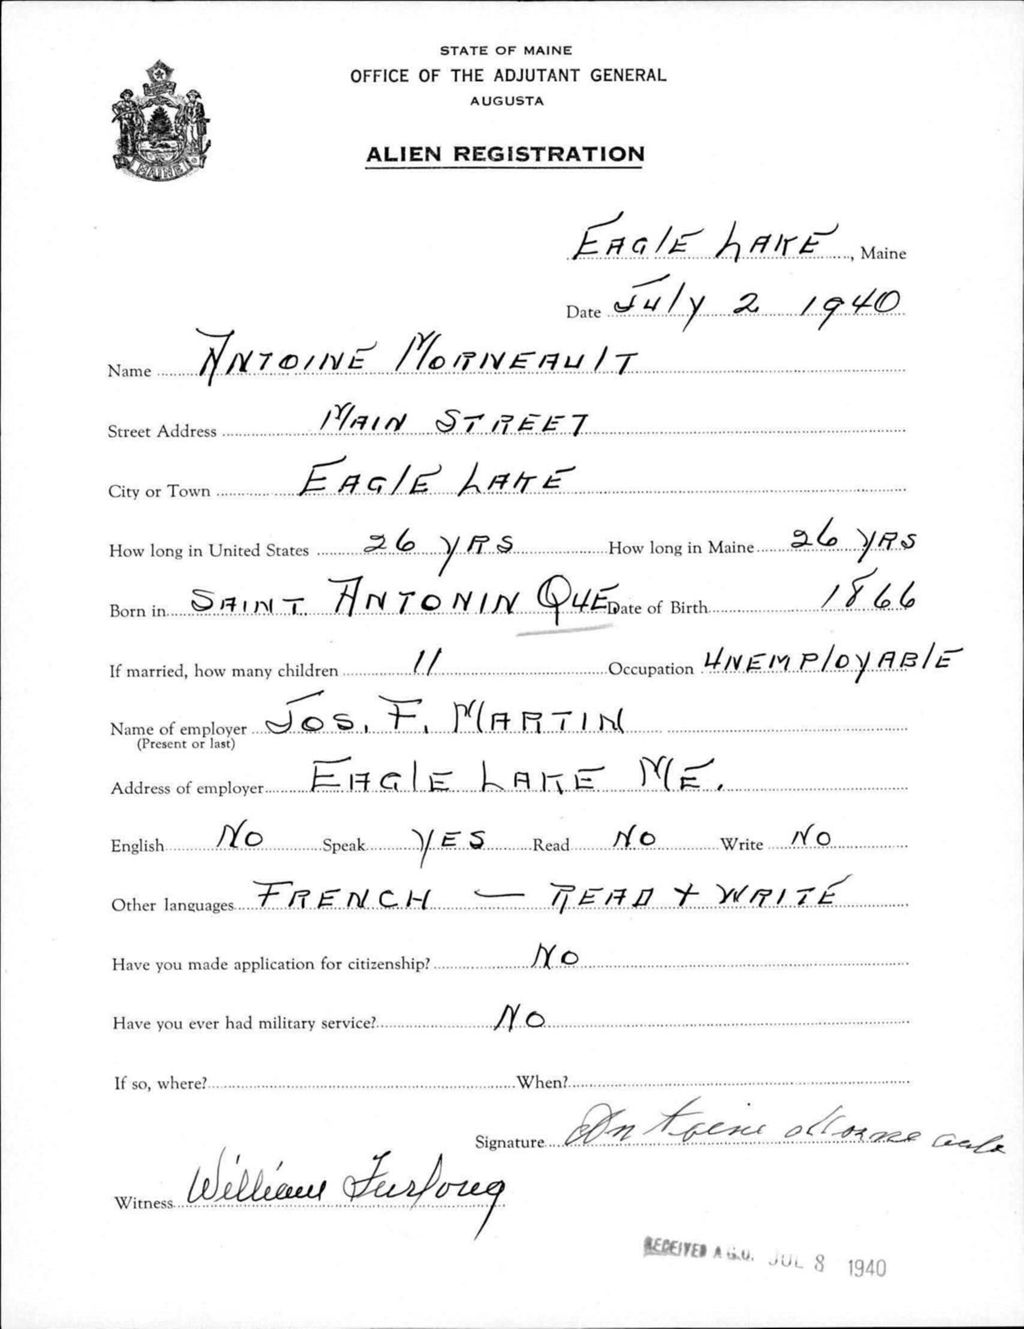 STATE OF MAINE
OFFICE OF THE ADJUTANT GENERAL
AUGUSTA
MAINE
ALIEN REGISTRATION
EAGlE LAKE, Maine
Date July 2 1940
Name ANTOINE MORNEAulT
Street Address MAIN STREET
City or Town EAGlE LAKE
How long in United States 26 yRS How long in Maine 26 yRS
Born in SAINT ANTONIN QUE Date of Birth 1866
If married, how many children 11 Occupation UNEMPloyABlE
Name of employer JOS. F. MARTIN
(Present or last)
Address of employer EAGlE LAKE ME.
English No Speak YES Read No Write No
Other languages FRENCH — READ + WRITE
Have you made application for citizenship? No
Have you ever had military service? No
If so, where? When?
Signature Antoine Morneault
Witness William Furlong
RECEIVED A.G.O. JUL 8 1940